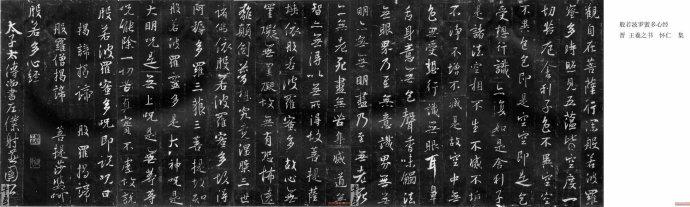 般若波罗蜜多心经
晋 王羲之书 怀仁 集
觀自在菩薩行深般若波羅
蜜多時照見五蘊皆空度一
切苦厄舍利子色不異空空
不異色色即是空空即是色
受想行識亦復如是舍利子
是諸法空相不生不滅不垢
不淨不增不減是故空中無
色無受想行識無眼耳鼻
舌身意無色聲香味觸法
無眼界乃至無意識界無無
明亦無無明盡乃至無老死
亦無老死盡無苦集滅道無
智亦無得以無所得故菩提薩
埵依般若波羅蜜多故心無
罣礙無罣礙故無有恐怖遠
離顛倒夢想究竟涅槃三世
諸佛依般若波羅蜜多故得
阿耨多羅三藐三菩提故知
般若波羅蜜多是大神咒是
大明咒是無上咒是無等等
咒能除一切苦真實不虛故說
般若波羅蜜多咒即說咒曰
揭諦揭諦 般羅揭諦
般羅僧揭諦 菩提莎婆呵
般若多心經
太子太傅尚書左僕射燕國公